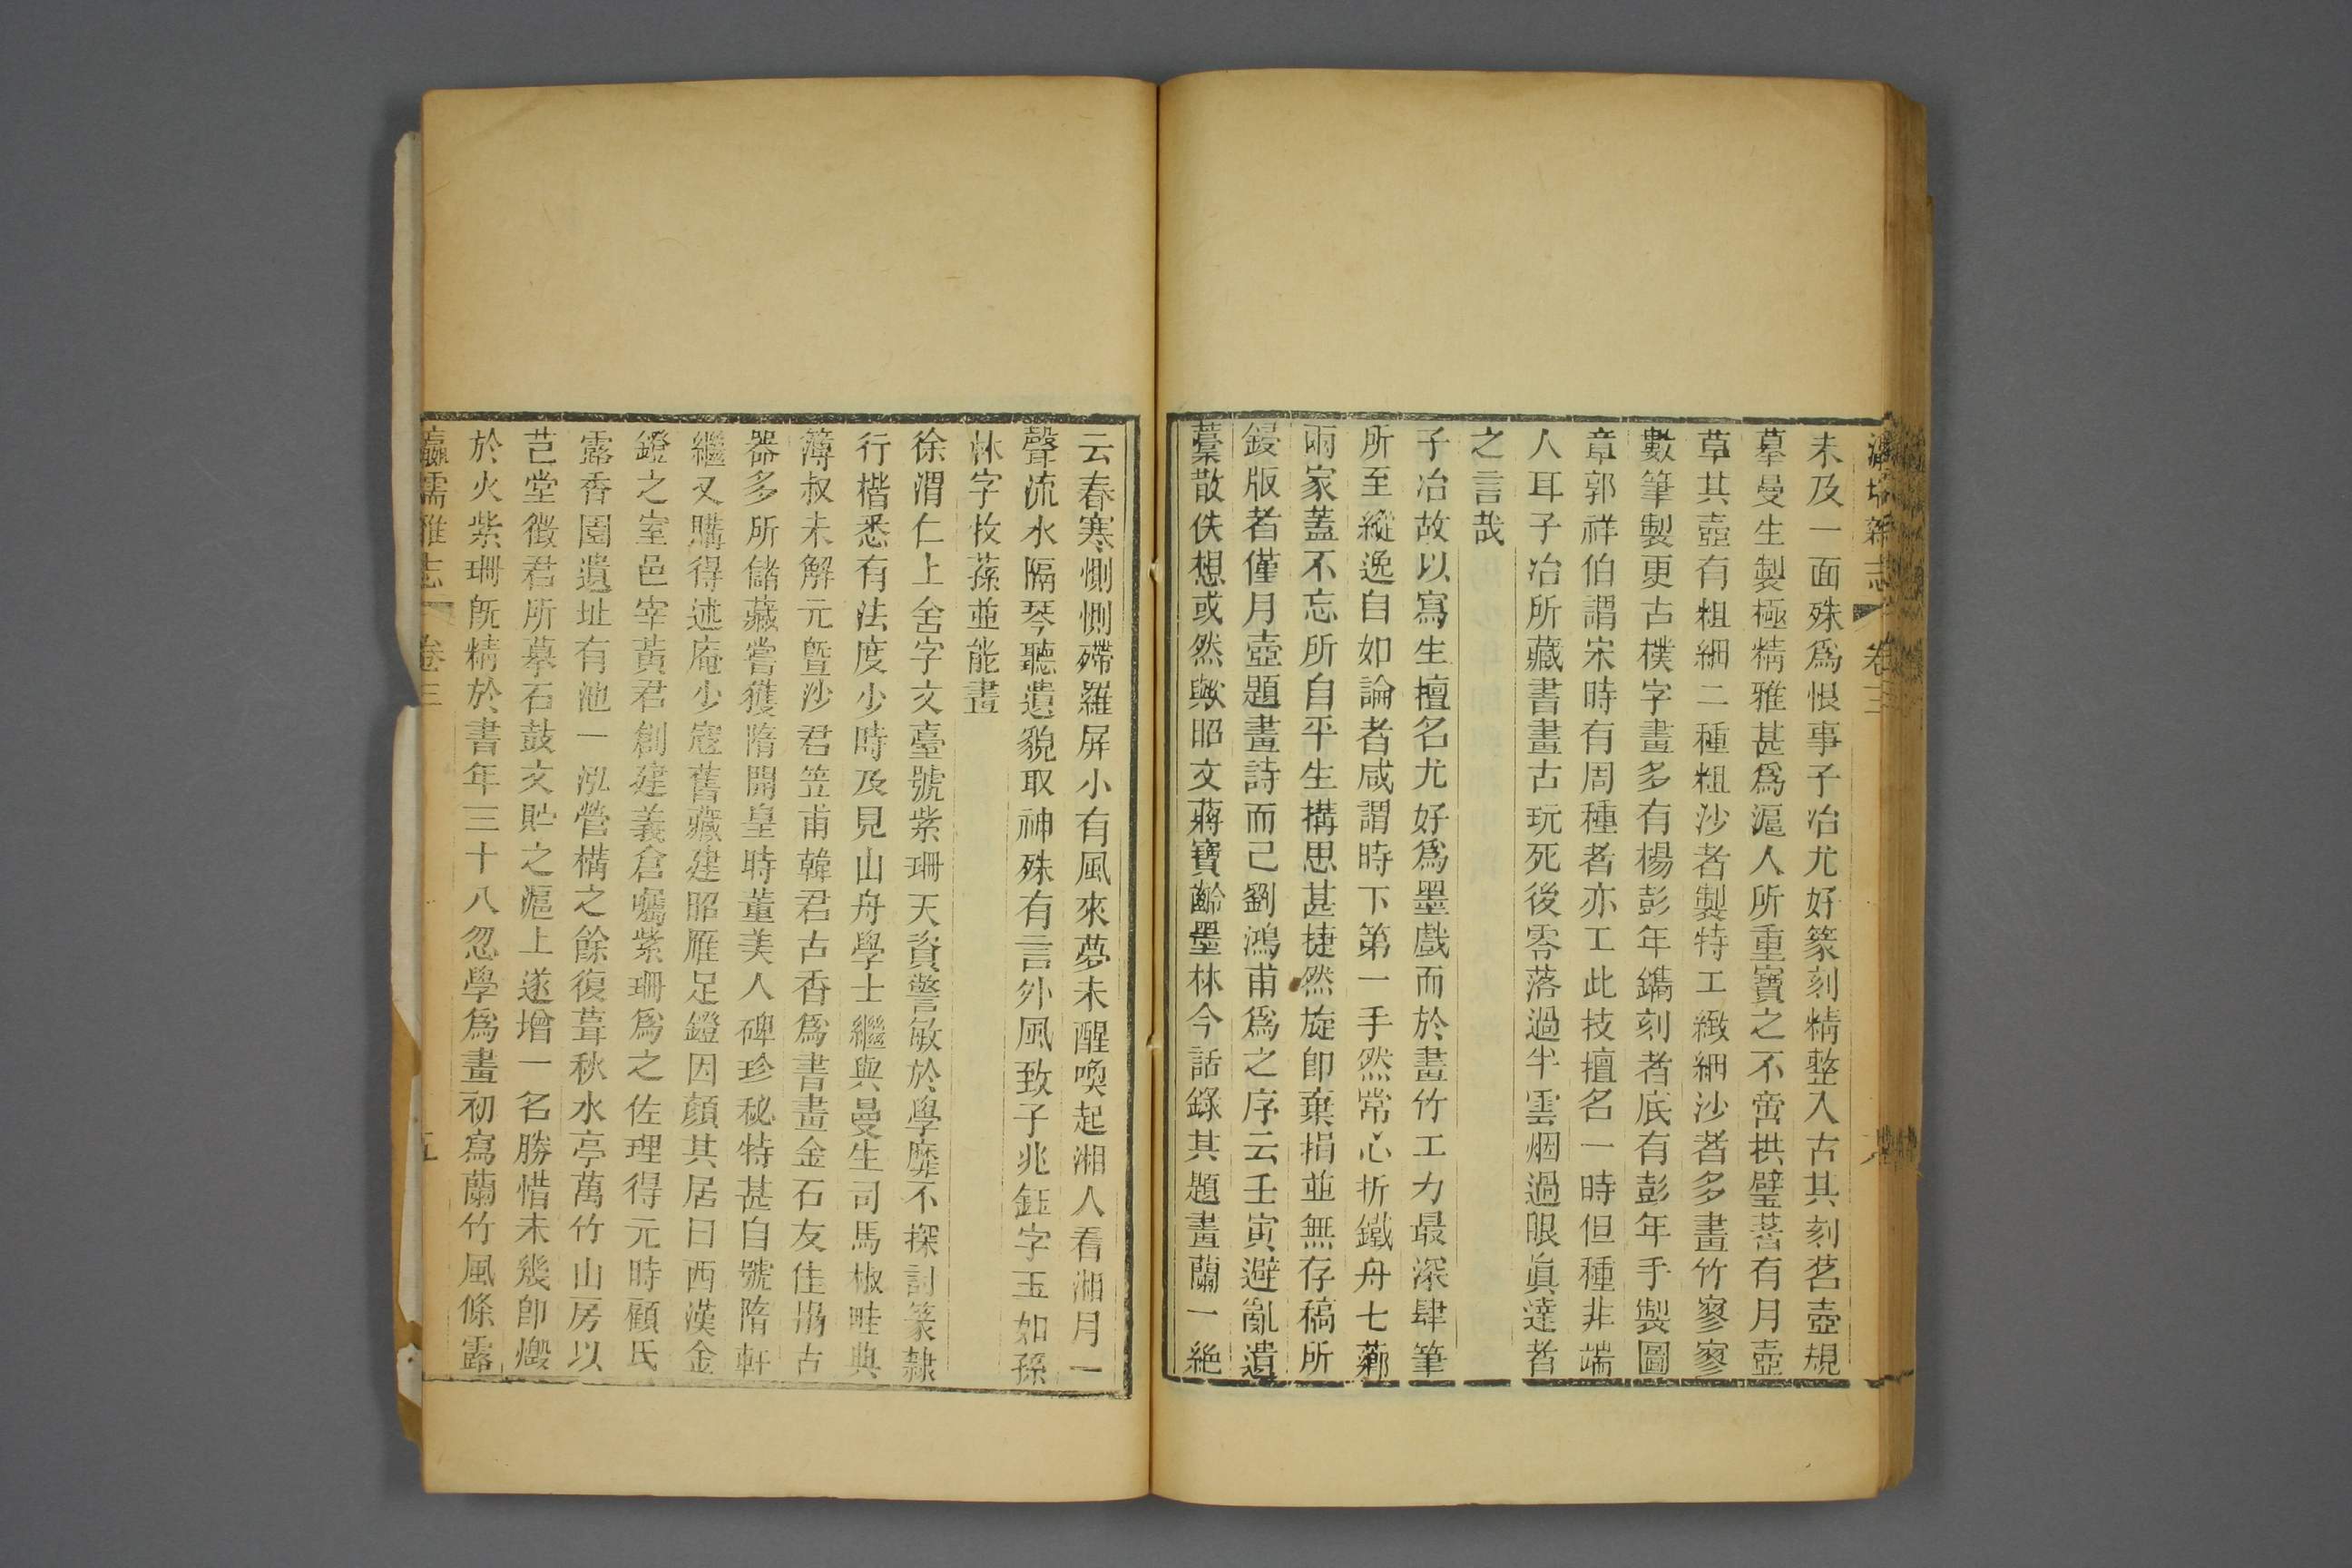 未及一面殊爲恨事子冶尤好篆刻精整入古其刻茗壺規
摹曼生製極精雅甚爲滬人所重寶之不啻拱璧葢有月壺
草其壺有粗細二種粗沙者製特工緻細沙者多畫竹寥寥
數筆製更古樸字畫多有楊彭年鐫刻者底有彭年手製圖
章郭祥伯謂宋時有周種者亦工此技擅名一時但種非端
人耳子冶所藏書畫古玩死後零落過半雲烟過眼眞達者
之言哉
子冶故以寫生擅名尤好爲墨戲而於畫竹工力最深肆筆
所至縱逸自如論者咸謂時下第一手然常心折鐵舟七薌
兩家蓋不忘所自平生搆思甚捷然旋卽棄捐並無存稿所
鋟版者僅月壺題畫詩而已劉鴻甫爲之序云壬寅避亂遺
藁散佚想或然歟昭文蔣寶齡墨林今話錄其題畫蘭一絕
云春寒惻惻殢羅屏小有風來夢未醒喚起湘人看湘月一
聲流水隔琴聽遺貌取神殊有言外風致子兆鈺字玉如孫
林字枚蓀並能畫
徐渭仁上舍字文臺號紫珊天資警敏於學靡不探討篆隸
行楷悉有法度少時及見山舟學士繼與曼生司馬椒畦典
簿叔未解元曁沙君笠甫韓君古香爲書畫金石友佳搨古
器多所儲藏嘗獲隋開皇時董美人碑珍秘特甚自號隋軒
繼又購得述庵少寇舊藏建昭雁足鐙因顏其居曰西漢金
鐙之室邑宰黃君創建義倉囑紫珊爲之佐理得元時顧氏
露香園遺址有池一泓營構之餘復葺秋水亭萬竹山房以
芑堂徵君所摹石鼓文貯之滬上遂增一名勝惜未幾卽燬
於火紫珊旣精於書年三十八忽學爲畫初寫蘭竹風條露
瀛壖雜志 卷三 五